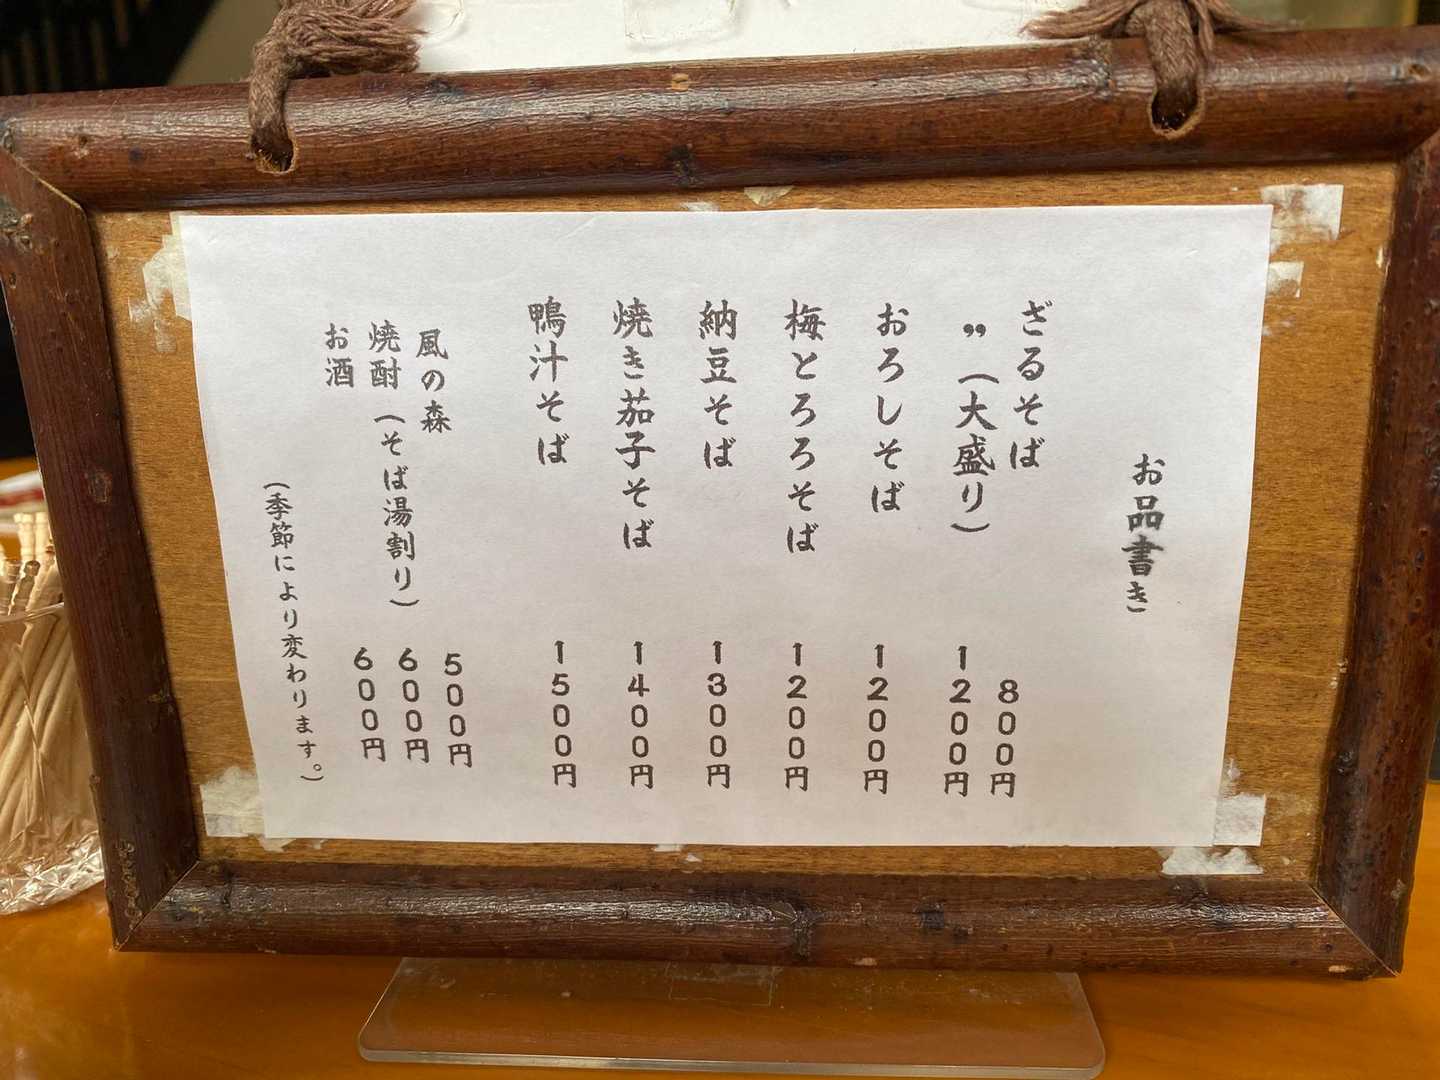 お品書き
ざるそば 800円
〃(大盛り) 1200円
おろしそば 1200円
梅とろろそば 1200円
納豆そば 1300円
焼き茄子そば 1400円
鴨汁そば 1500円
風の森 500円
焼酎(そば湯割り) 600円
お酒 600円
(季節により変わります。)